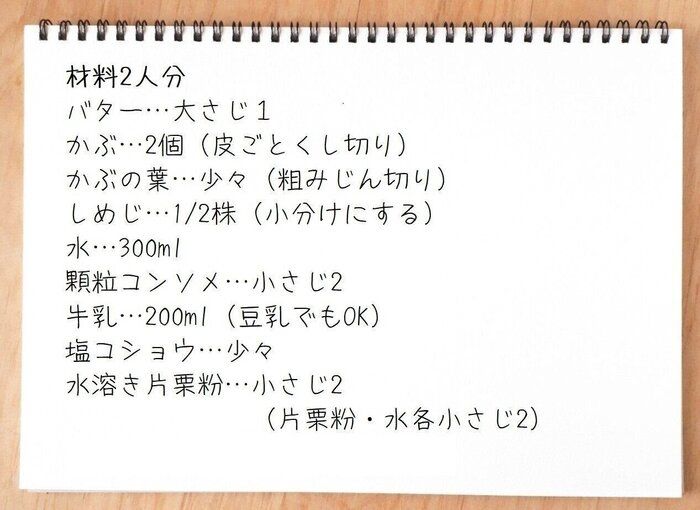 材料2人分
バター…大さじ1
かぶ…2個（皮ごとくし切り）
かぶの葉…少々（粗みじん切り）
しめじ…1/2株（小分けにする）
水…300ml
顆粒コンソメ…小さじ2
牛乳…200ml（豆乳でもOK）
塩コショウ…少々
水溶き片栗粉…小さじ2
（片栗粉・水各小さじ2）